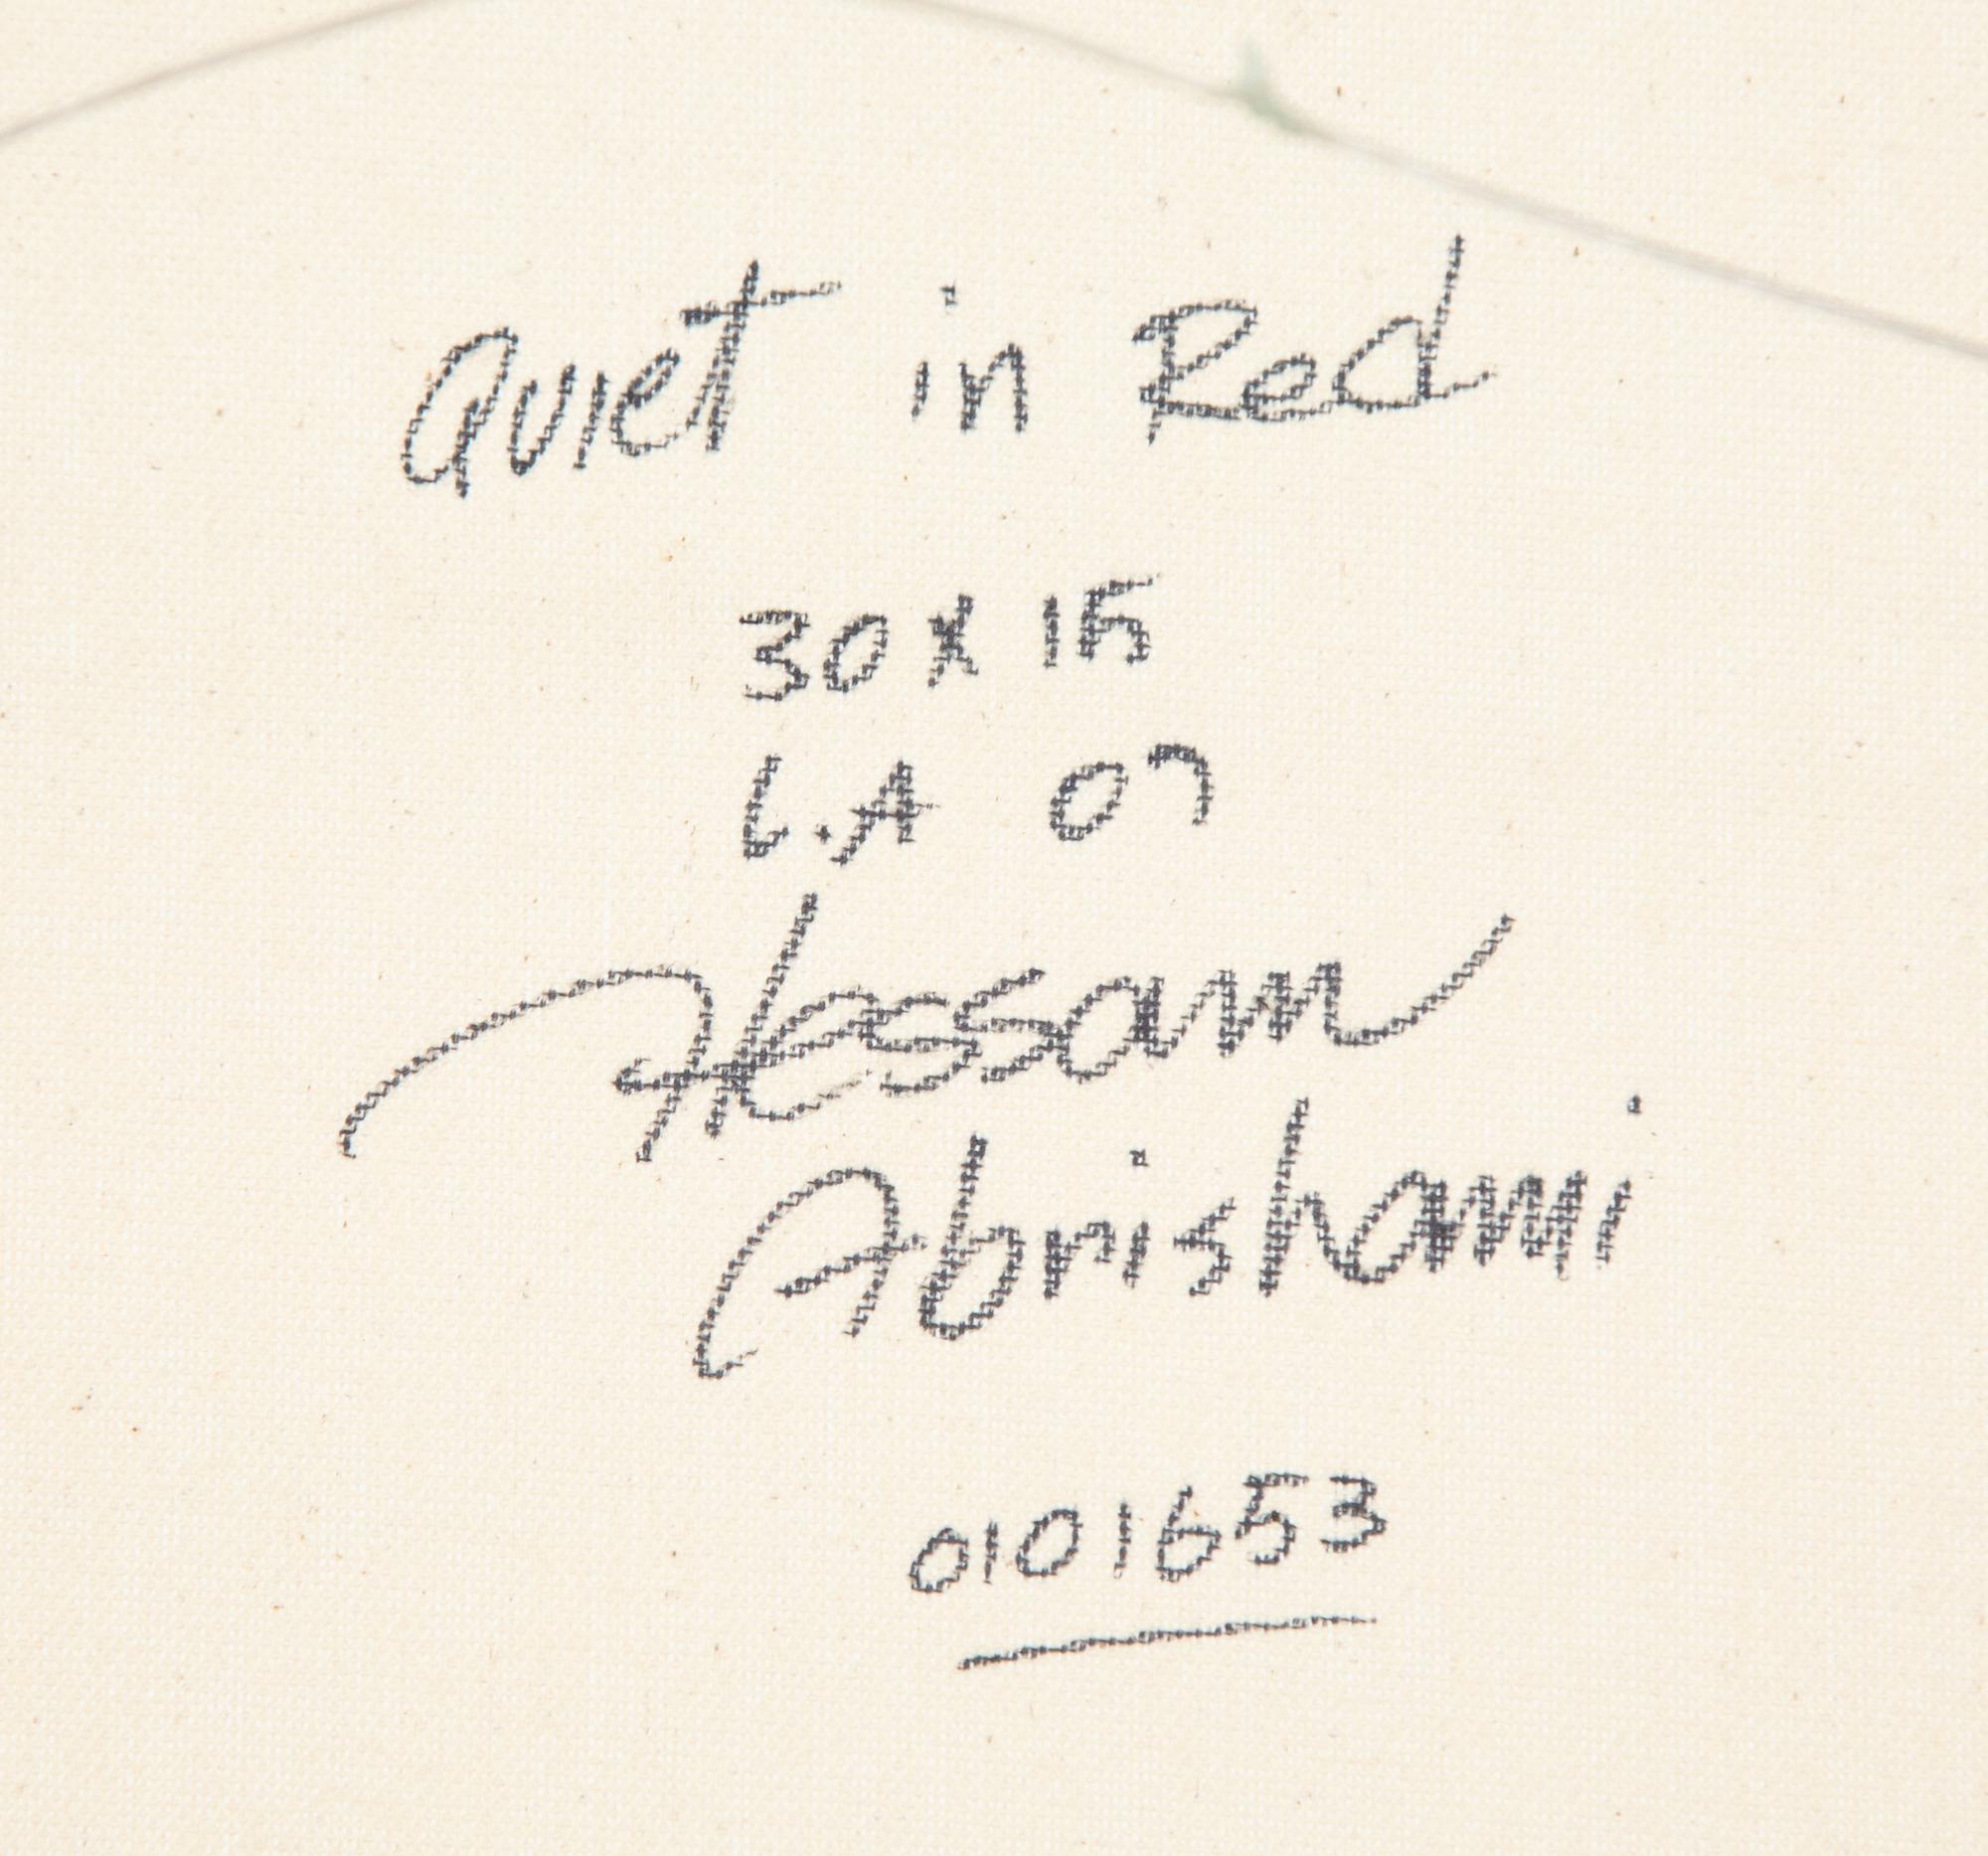 Quiet in Red
30 x 15
L.A 07
Hessam
Abrishami
0101653